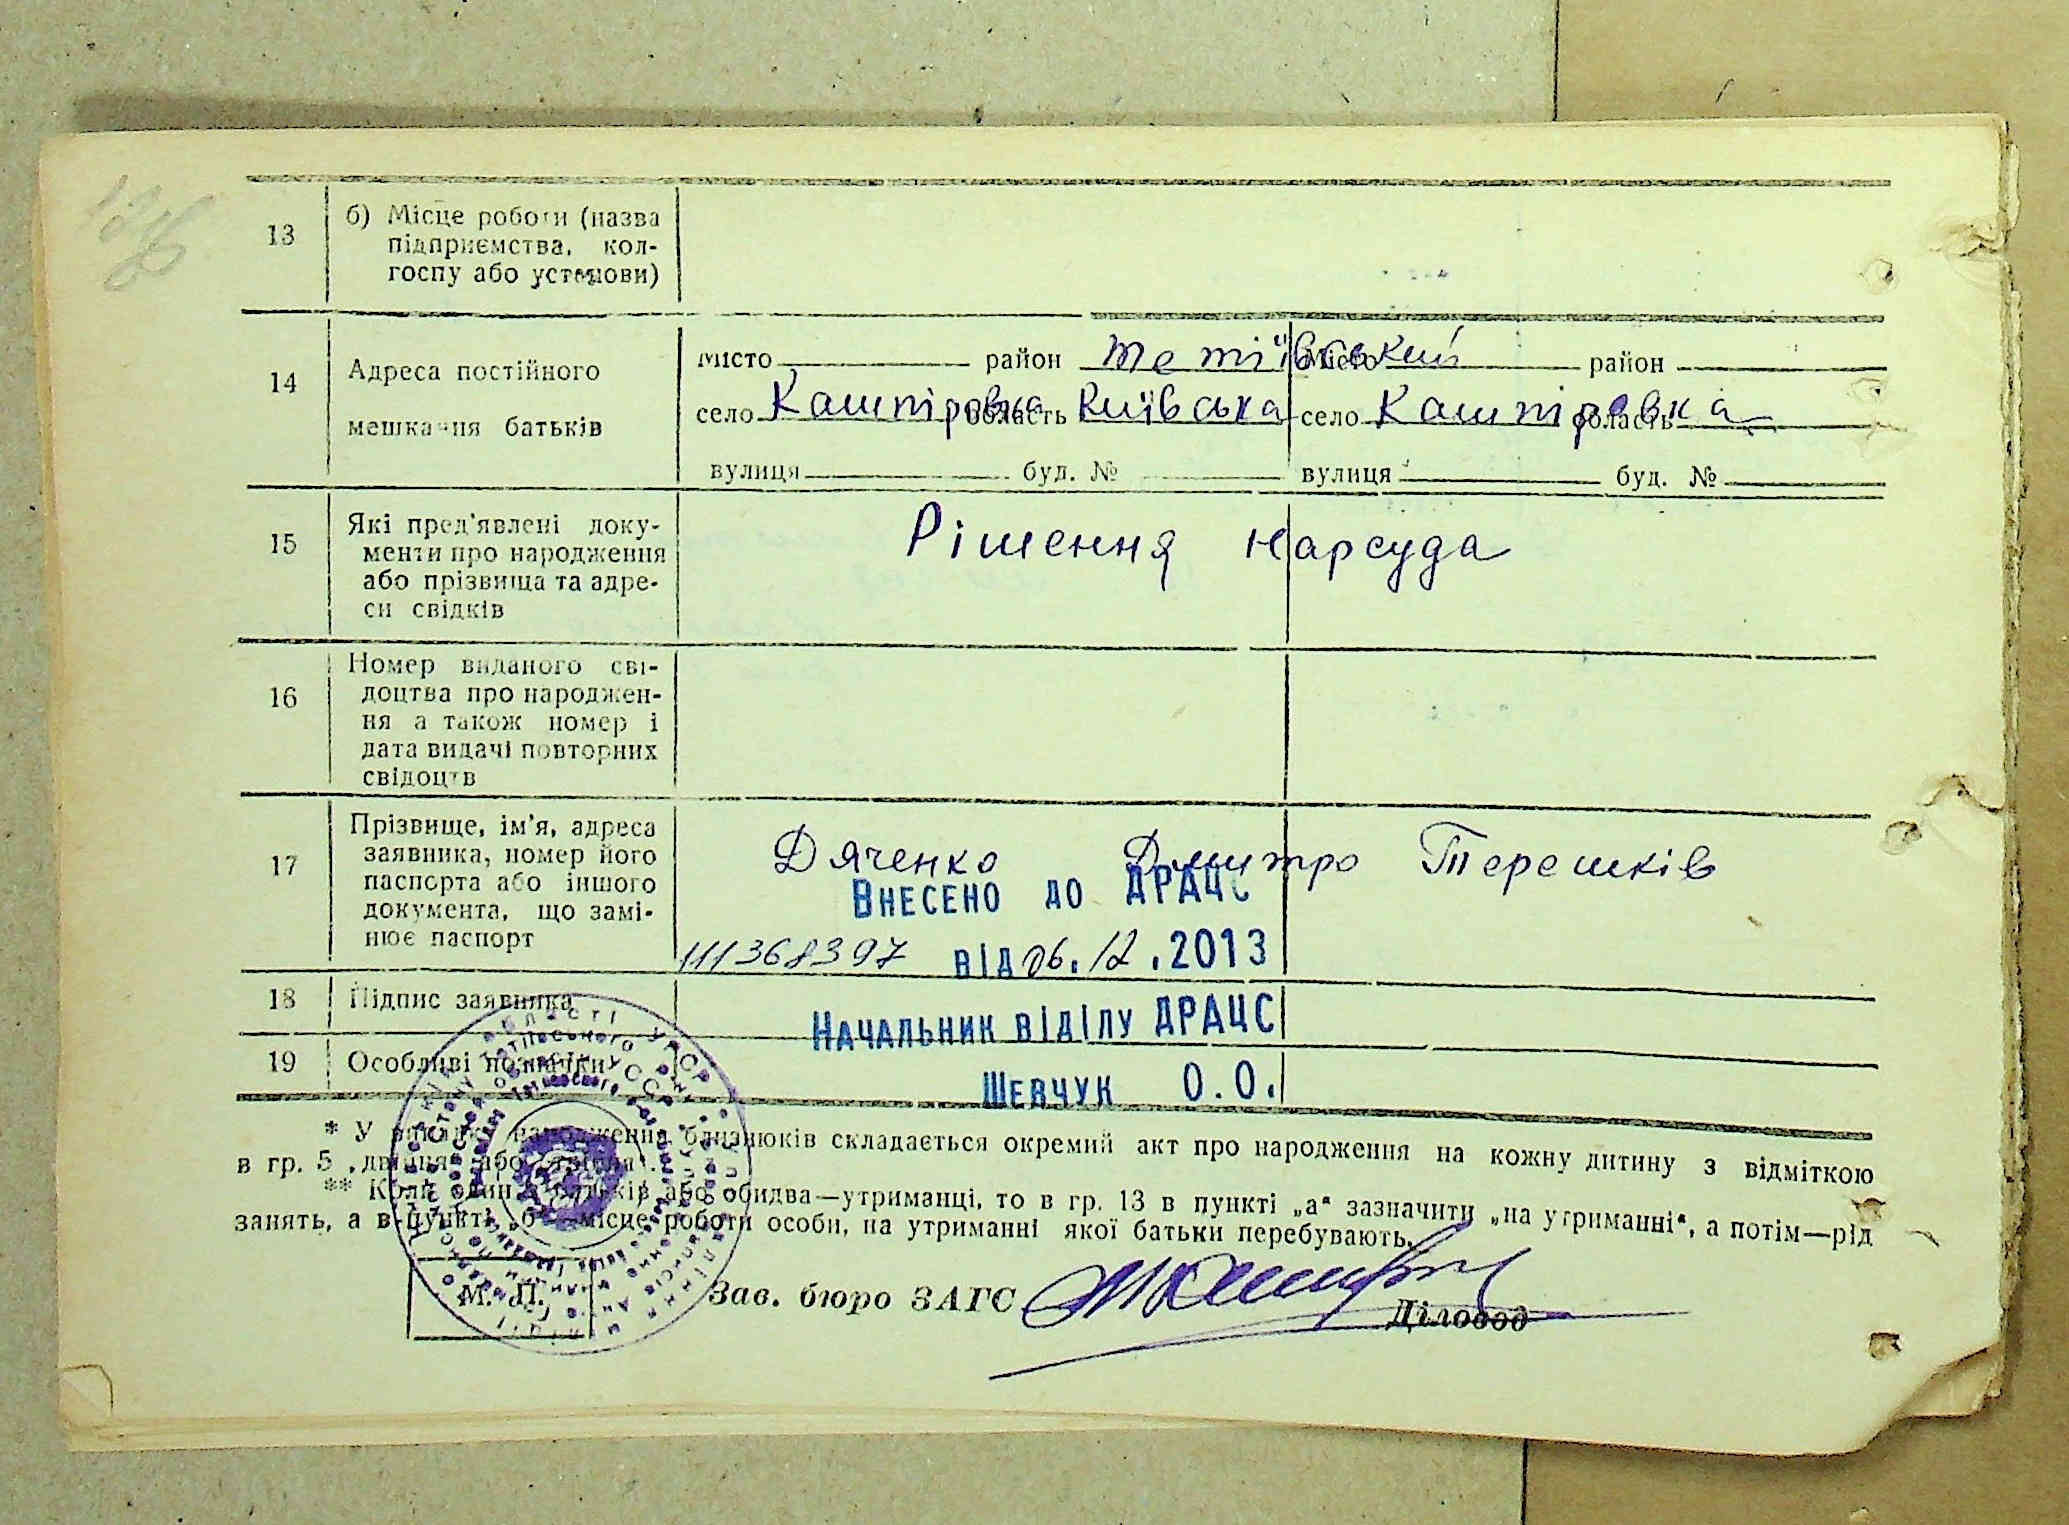 13
б) Місце роботи (назва
підприємства, кол-
госпу або установи)
14
Адреса постійного
мешкання батьків
місто район Тетіївський місто район
село Кашпіровка область Київська село Кашпіровка область
вулиця буд. № вулиця буд. №
15
Які пред'явлені доку-
менти про народження
або прізвища та адре-
си свідків
Рішення нарсуда
16
Номер виданого сві-
доцтва про народжен-
ня а також номер і
дата видачі повторних
свідоцтв
17
Прізвище, ім'я, адреса
заявника, номер його
паспорта або іншого
документа, що замі-
нює паспорт
Дяченко Дмитро Терешків
Внесено до ДРАЦС
111368397 від 06.12.2013
18
Підпис заявника
Начальник відділу ДРАЦС
19
Особливі позначки
Шевчук О.О.
* У випадку народження близнюків складається окремий акт про народження на кожну дитину з відміткою
в гр. 5 „двійня" або „трійня".
** Коли один з батьків або обидва—утриманці, то в гр. 13 в пункті „а" зазначити „на утриманні", а потім—рід
занять, а в пункті „б"—місце роботи особи, на утриманні якої батьки перебувають.
М. П.
Зав. бюро ЗАГС
Діловод